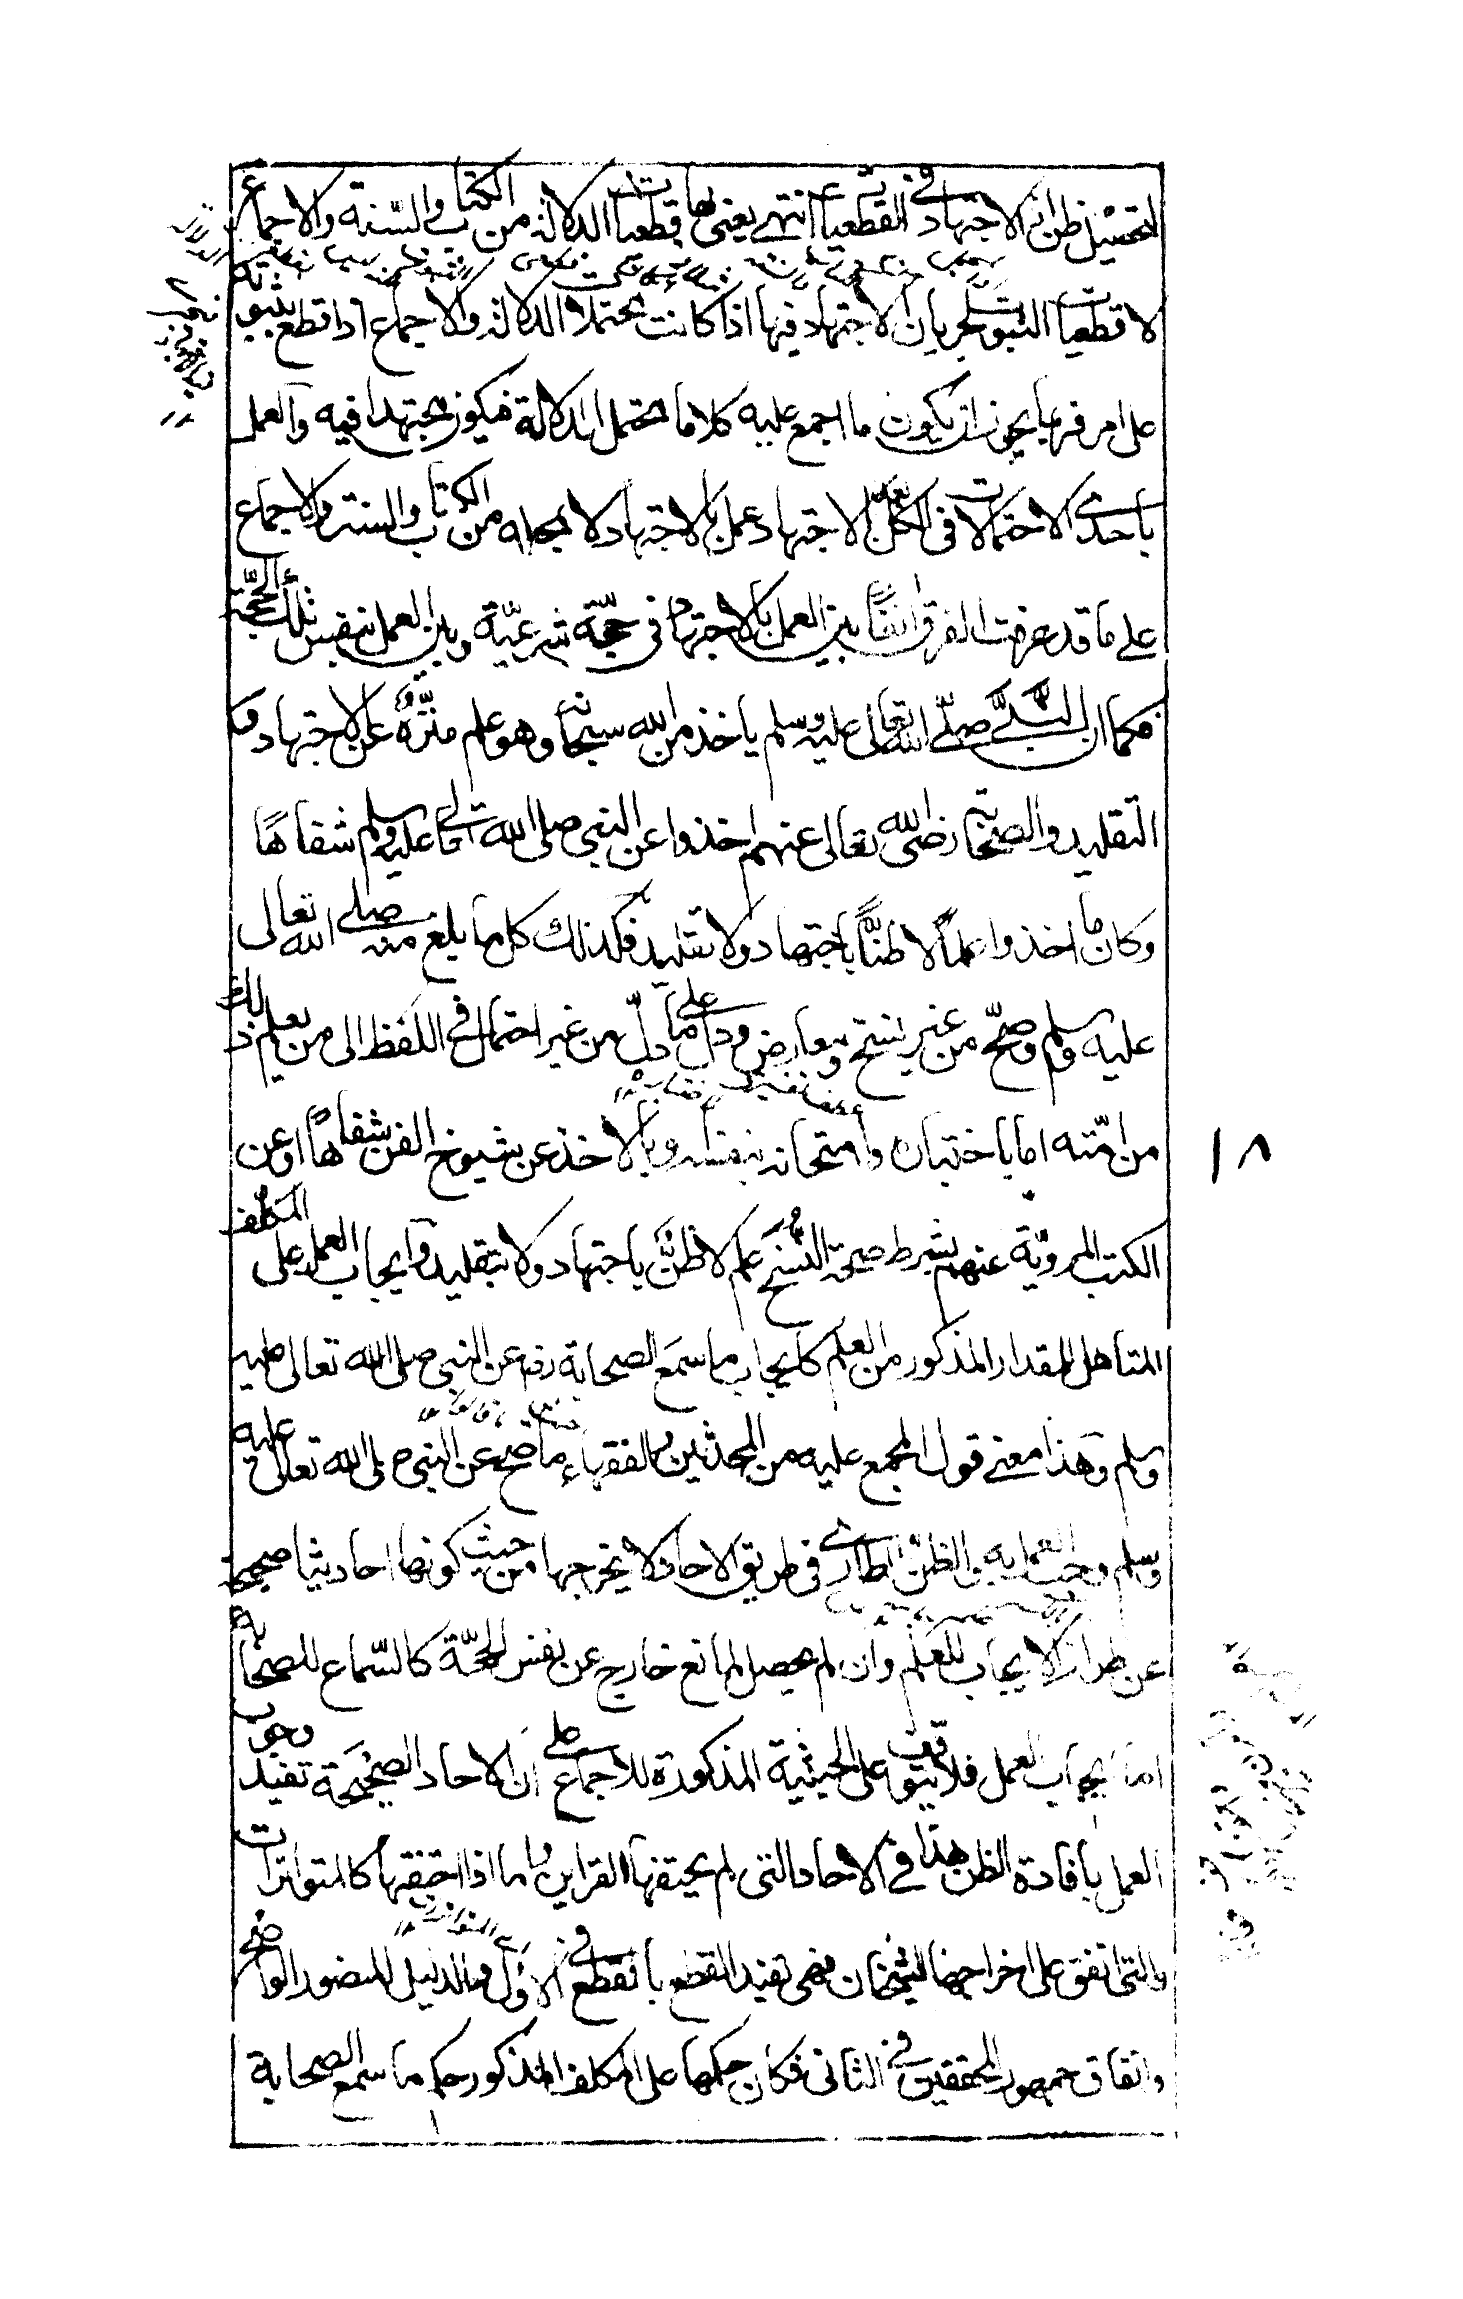 لتحصيل ظن اذ لا اجتهاد في القطعيات انتهى يعني بها قطعيات الدلالة من الكتاب والسنة والاجماع
لا قطعيات الثبوت لجريان الاجتهاد فيها اذا كانت محتملات الدلالة والاجماع اذا قطع بثبوته
على امر فربما يجوز ان يكون ما اجمع عليه كلاما محتمل الدلالة فيكون مجتهدا فيه والعمل
باحدى الاحتمالات في الكل الاجتهاد عمل بالاجتهاد لا بمحله من الكتاب والسنة والاجماع
على ما قد عرفت الفرق انفا بين العمل بالاجتهاد في حجة شرعية وبين العمل بنفس تلك الحجة
فكما ان النبي صلى الله تعالى عليه وسلم ياخذ من الله سبحانه وهو علم منزه عن الاجتهاد و
التقليد والصحابة رضى الله تعالى عنهم اخذوا عن النبي صلى الله تعالى عليه وسلم شفاها
وكان ما اخذوا علما لا ظنا باجتهاد ولا تقليد فكذلك كل ما بلغ منه صلى الله تعالى
عليه وسلم وصح من غير نسخ ومعارض ودل على ما دل من غير احتمال في اللفظ الى من يعلم ذلك
من امته اما باختباره وامتحانه بنفسه وبالاخذ عن شيوخ الفن شفاها او عن
الكتب المروية عنهم بشرط صحة النسخ علم لا ظن باجتهاد ولا بتقليد وايجاب العمل على المكلف
المتاهل المقدار المذكور من العلم كايجاب ما سمع الصحابة رضم عن النبي صلى الله تعالى عليه
وسلم وهذا معنى قول المجمع عليه من المحدثين والفقهاء ما صح عن النبي صلى الله تعالى عليه
وسلم وجب العمل به الظن الطارى في طريق الاحاد لا يخرجها من حيث كونها احاديثا صحيحة
عن طراز الايجاب للعلم وان لم يحصل لمانع خارج عن نفس الحجة كالسماع للصحابة
اما ايجاب العمل فلا يتوقف على الحيثية المذكورة للاجماع على ان الاحاد الصحيحة تفيد وجوب
العمل بافادة الظن هذا في الاحاد التي لم يحتفها القراين واما اذا احتفتها كالمتواترات
والتى اتفق على اخراجها الشيخان فهى تفيد القطع بالقطع في الاول والدليل المنصور الواضح
واتفاق جمهور المحققين في الثاني فكان حكمها على المكلف المذكور حكم ما سمع الصحابة
١٨